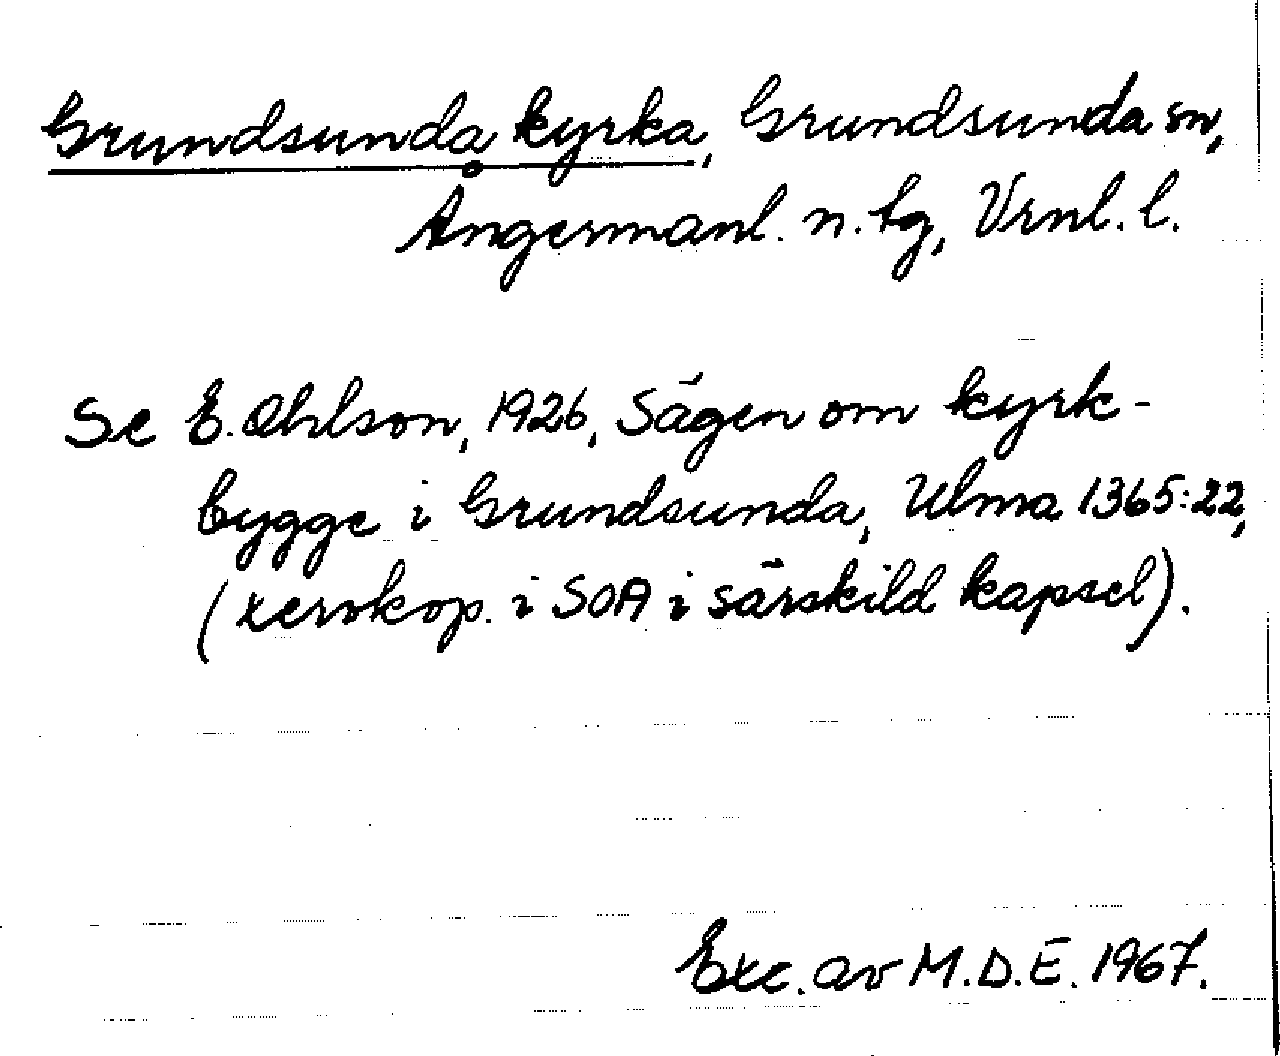 Grundsunda kyrka, Grundsunda sn,
Ångermanl. n. tg, Vrnl. l.
Se E. Ohlson, 1926, Sägen om kyrk-
bygge i Grundsunda, Ulma 1365:22,
(xerokop. i SOA i särskild kapsel).
Exc. av M.D.E. 1967.